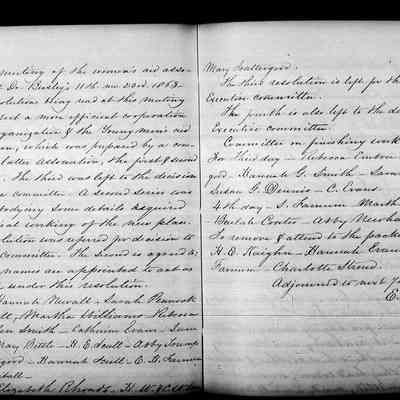 meeting of the women's aid asso-
Dr Boxley's 11th mo 23rd. 1863.
resolutions being read at this meeting
effect a more efficient cooperation
organization & the Young Men's aid
which was prepared by a com-
latter Association, the first & second
The third was left to the decision
committee. A second series was
embodying some details required
working of the new plan.
was referred for decision to
Committee. The Second is agreed to
names are appointed to act as
under this resolution.
Hannah Newall - Sarah Peacock
Martha Williams Rebecca
Smith - Catharine Evans - Susan
Mary Bettle - H. E. Scull - Abby Troump
Hannah Scull - E. B. Farnum
Elizabeth Rhoads, H. W.
Mary Scattergood.
The third resolution is left for the
Executive Committee.
The fourth is also left to the de
Executive Committee.
Committee on finishing work
For third day - Rebecca
good - Hannah G. Smith - Sarah
Susan G. Dennis - C. Evans
4th day - S. Farnum Martha
Abby Newhall
To remove & attend to the packing
H. E. Kaighn - Hannah Evans
Farnum - Charlotte Stroud.
Adjourned to next 7